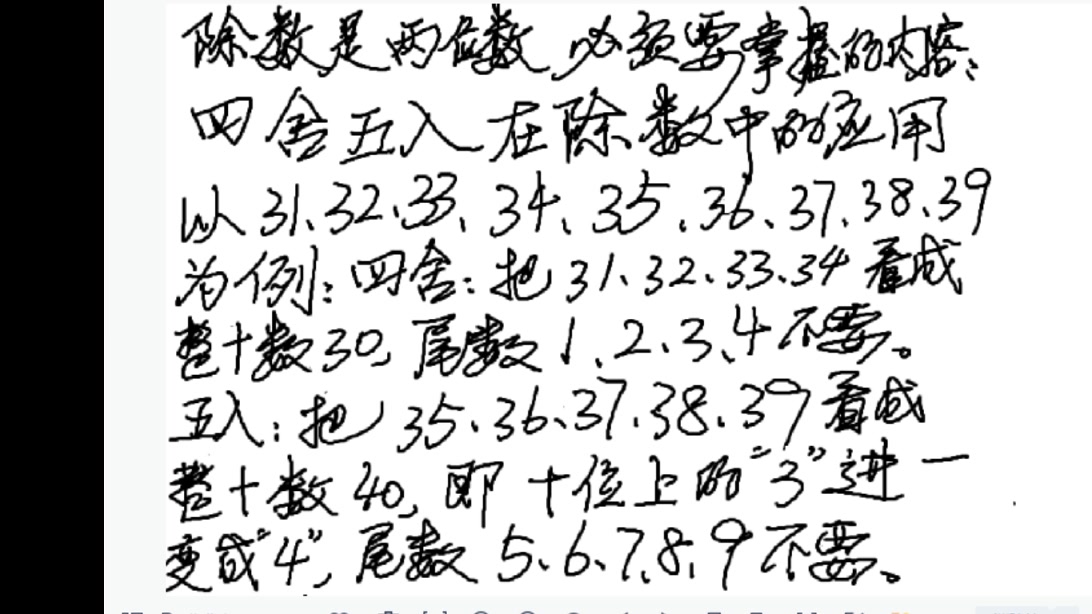 除数是两位数必须要掌握的内容：
四舍五入在除数中的应用
以31、32、33、34、35、36、37、38、39
为例：四舍：把31、32、33、34看成
整十数30，尾数1、2、3、4不要。
五入：把35、36、37、38、39看成
整十数40，即十位上的“3”进一
变成“4”，尾数5、6、7、8、9不要。